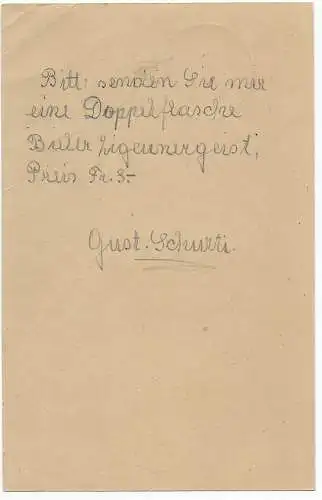 Bitte senden Sie mir
eine Doppelflasche
Zigeunergeist,
Preis Fr. 3.-
Gust. Schurti.